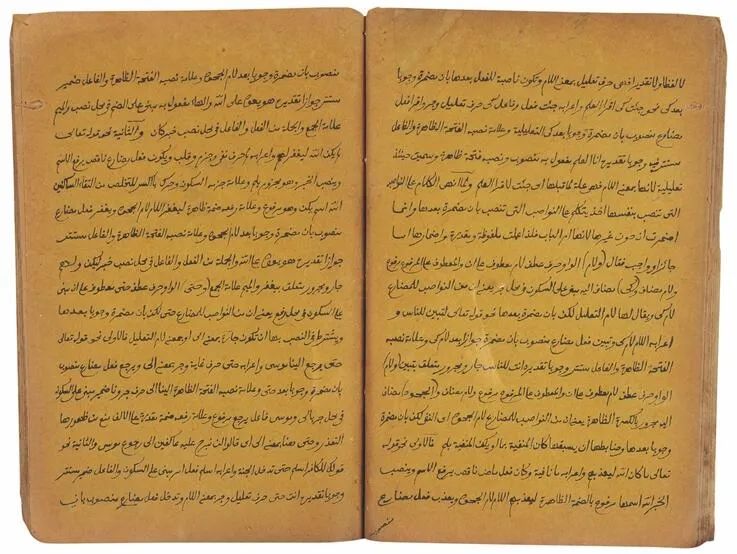 لا لفظا ولا تقديرا فهي حرف تعليل بمعنى اللام وتكون ناصبة للفعل بعدها بان مضمرة وجوبا
بعد كي نحو جئت كي اقرا العلم واعرابه جئت فعل وفاعل كي حرف تعليل وجر واقرا فعل
مضارع منصوب بان مضمرة وجوبا بعد كي التعليلية وعلامة نصبه الفتحة الظاهرة والفاعل
مستتر فيه وجوبا تقديره انا العلم مفعول به منصوب ونصبه فتحة ظاهرة وسميت حينئذ
تعليلية لانها بمعنى اللام فهي علة لما قبلها اي جئت لاقرا العلم ولما انهى الكلام على النواصب
التي تنصب بنفسها اخذ يتكلم على النواصب التي تنصب بان مضمرة بعدها وانما
اضمرت ان دون غيرها لانها ام الباب فلذا عملت ملفوظة ومقدرة واضمارها اما
جائز او واجب فقال (ولام) الواو حرف عطف لام معطوف على ان والمعطوف على المرفوع مرفوع
ولام مضاف و(كي) مضاف اليه مبني على السكون في محل جر يعني ان من النواصب للمضارع
لام كي ويقال لها لام التعليل لكن بان مضمرة بعدها نحو قوله تعالى لتبين للناس و
اعرابه اللام لام كي وتبين فعل مضارع منصوب بان مضمرة جوازا بعد لام كي وعلامة نصبه
الفتحة الظاهرة والفاعل مستتر وجوبا تقديره انت للناس جار ومجرور يتعلق بتبين (ولام)
الواو حرف عطف لام معطوف على ان والمعطوف على المرفوع مرفوع ولام مضاف و(الجحود) مضاف
اليه مجرور بالكسرة الظاهرة يعني ان من النواصب للمضارع لام الجحود اي النفي لكن بان مضمرة
وجوبا بعدها وضابطها ان يسبقها كان المنفية بما او يكن المنفية بلم فالاولى نحو قوله
تعالى ما كان الله ليعذبهم واعرابه ما نافية وكان فعل ماض ناقص يرفع الاسم وينصب
الخبر الله اسمها مرفوع بالضمة الظاهرة ليعذبهم اللام لام الجحود ويعذب فعل مضارع
منصوب
منصوب بان مضمرة وجوبا بعد لام الجحود وعلامة نصبه الفتحة الظاهرة والفاعل ضمير
مستتر جوازا تقديره هو يعود على الله والهاء مفعول به مبني على الضم في محل نصب والميم
علامة الجمع والجملة من الفعل والفاعل في محل نصب خبر كان والثانية نحو قوله تعالى
لم يكن الله ليغفر لهم واعرابه لم حرف نفي وجزم وقلب ويكون فعل مضارع ناقص يرفع الاسم
وينصب الخبر وهو مجزوم بلم وعلامة جزمه السكون وحرك بالكسر للتخلص من التقاء الساكنين
الله اسم يكن وهو مرفوع وعلامة رفعه ضمة ظاهرة ليغفر اللام لام الجحود ويغفر فعل مضارع
منصوب بان مضمرة وجوبا بعد لام الجحود وعلامة نصبه الفتحة الظاهرة والفاعل مستتر
جوازا تقديره هو يعود على الله والجملة من الفعل والفاعل في محل نصب خبر يكن ولهم
جار ومجرور يتعلق بيغفر والميم علامة الجمع (وحتى) الواو حرف عطف حتى معطوف على ان مبني
على السكون في محل رفع يعني ان من النواصب للمضارع حتى لكن بان مضمرة بعدها وجوبا
ويشترط في النصب بها ان تكون جارة بمعنى الى او بمعنى لام التعليل فالاولى نحو قوله تعالى
حتى يرجع الينا موسى واعرابه حتى حرف غاية وجر بمعنى الى ويرجع فعل مضارع منصوب
بان مضمرة وجوبا بعد حتى وعلامة نصبه الفتحة الظاهرة الينا الى حرف جر ونا ضمير مبني على السكون
في محل جر بالى وموسى فاعل يرجع مرفوع وعلامة رفعه ضمة مقدرة على الالف منع من ظهورها
التعذر وحتى هنا بمعنى الى اي قالوا لن نبرح عليه عاكفين الى رجوع موسى والثانية نحو
قولك للكافر اسلم حتى تدخل الجنة واعرابه اسلم فعل امر مبني على السكون والفاعل ضمير مستتر
وجوبا تقديره انت حتى حرف تعليل وجر بمعنى اللام وتدخل فعل مضارع منصوب بان